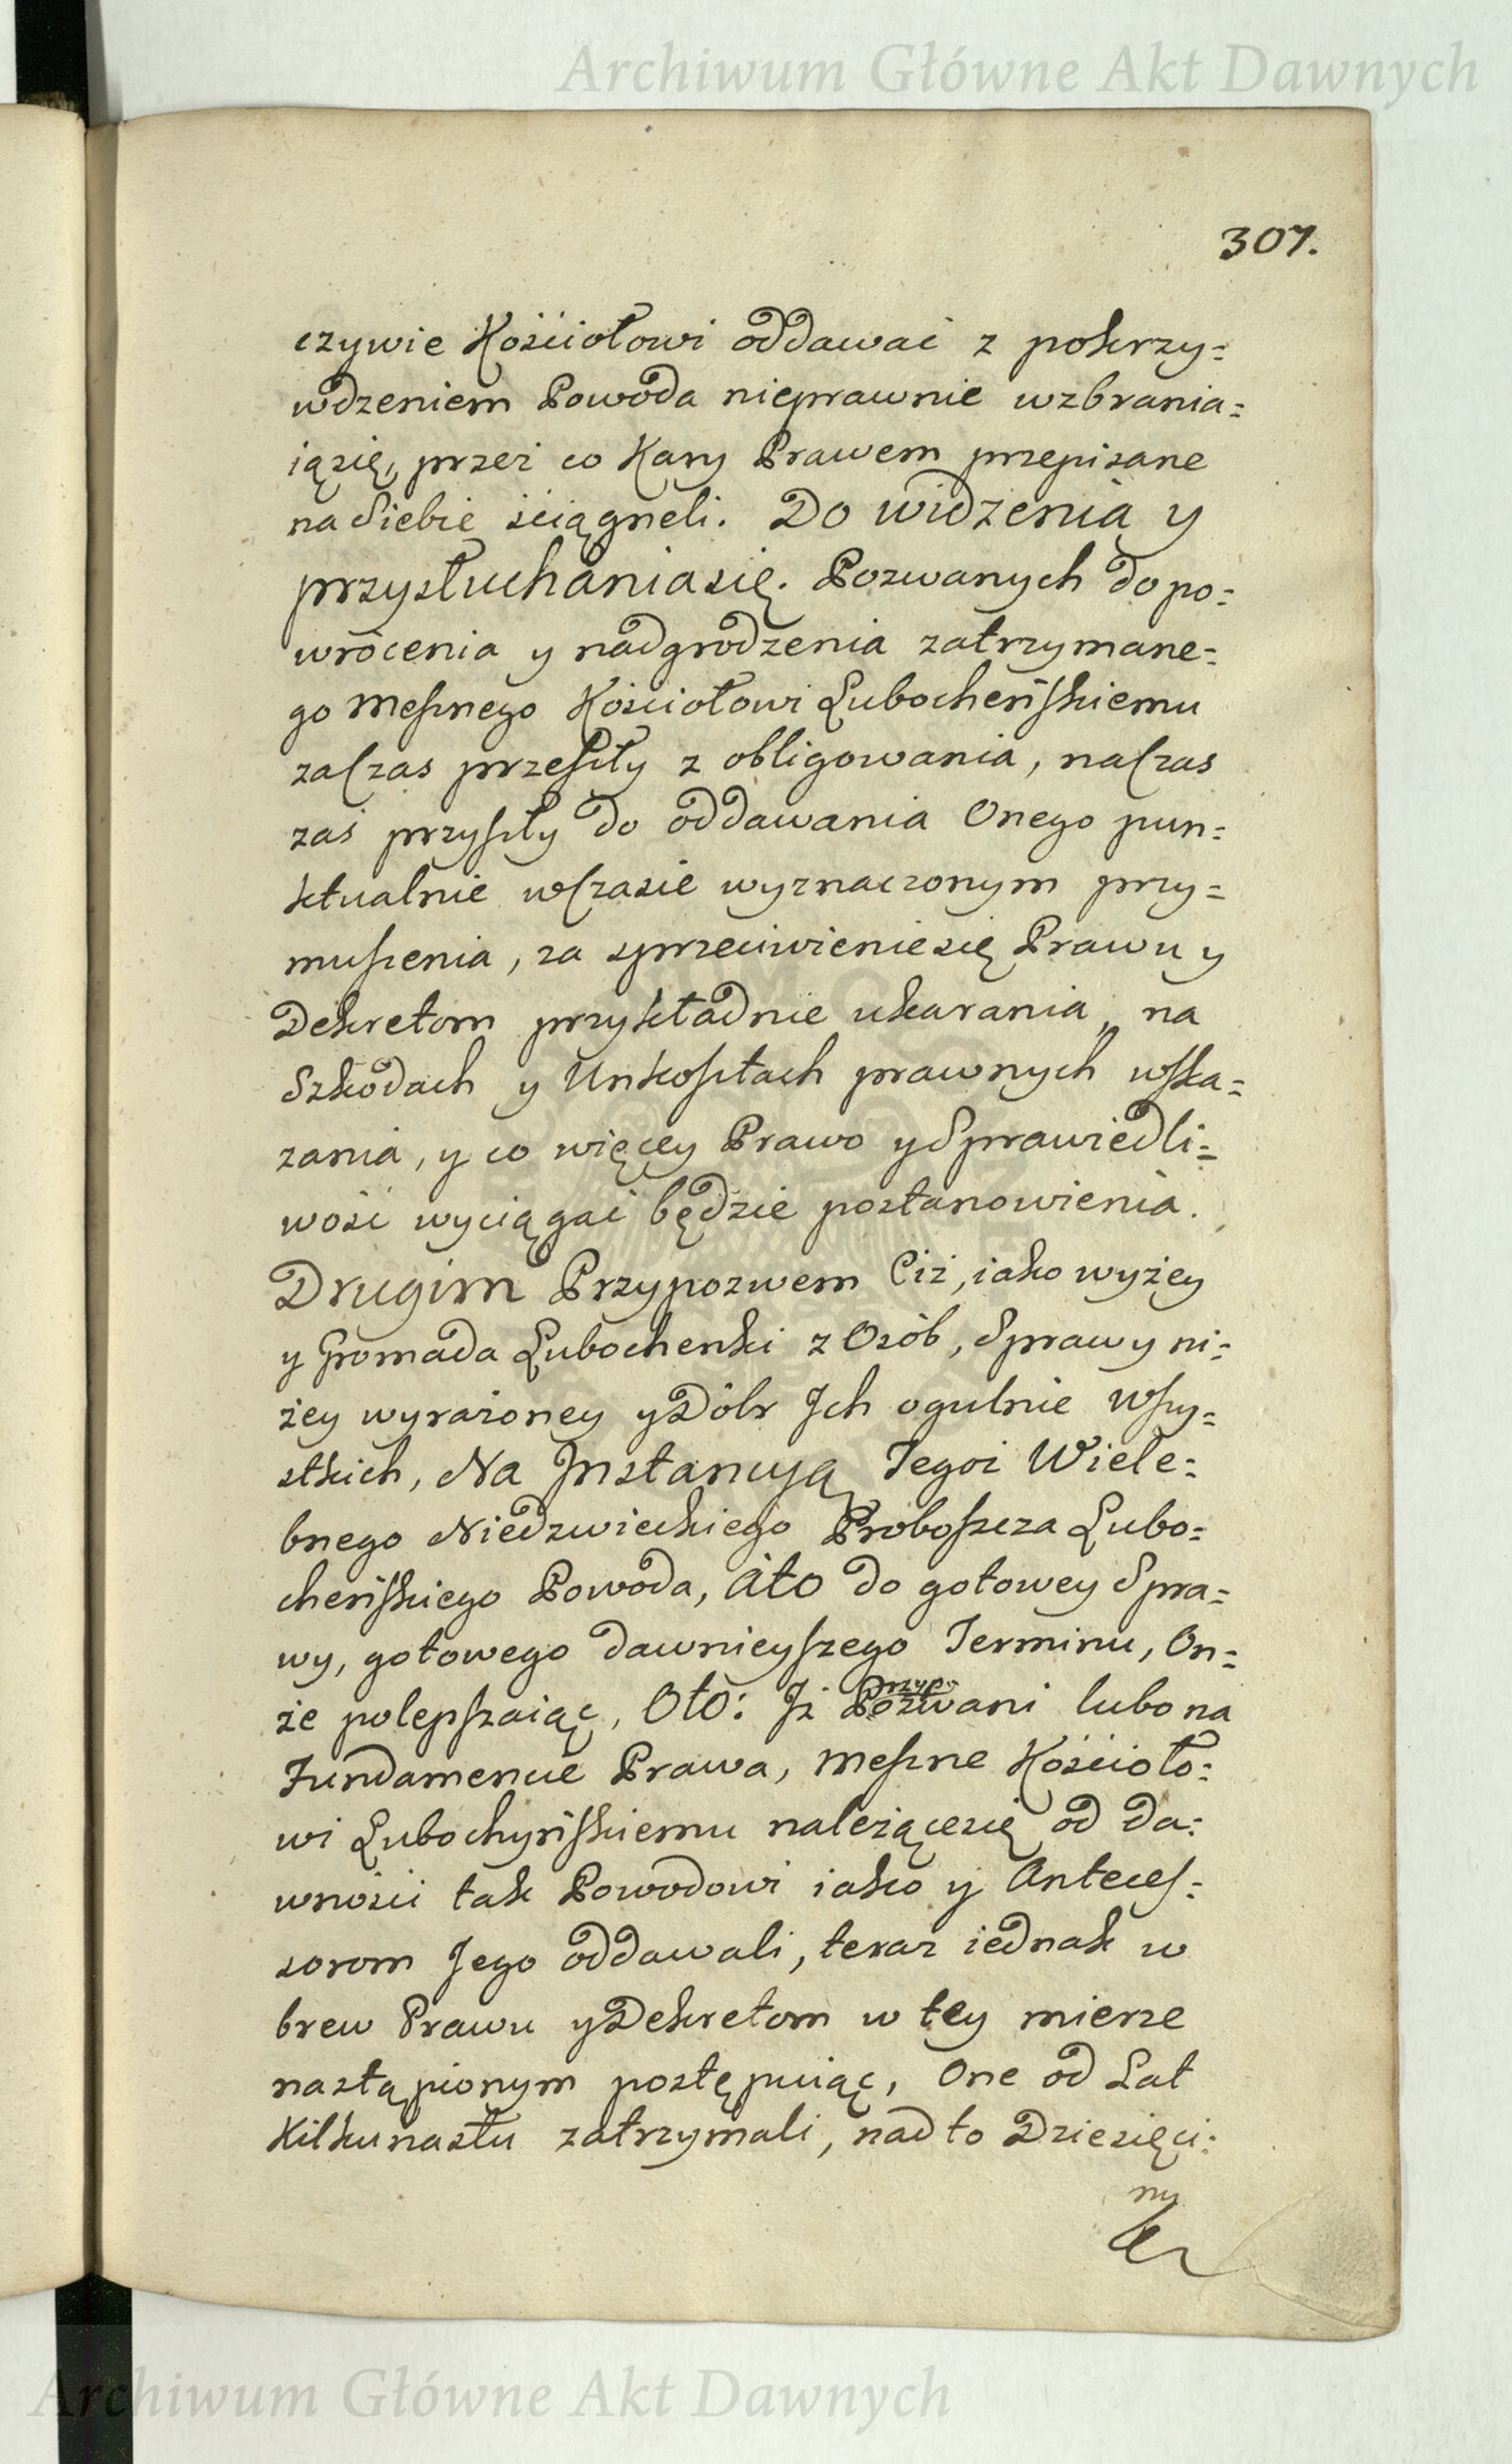 Archiwum Główne Akt Dawnych
307.
czywie Kościołowi oddawać z pokrzy=
wdzeniem Powoda nieprawnie wzbrania=
ią się, przez co Kary Prawem przepisane
na Siebie ściągneli. Do widzenia y
przysłuchania się. Pozwanych do po=
wrócenia y nadgrodzenia zatrzymane=
go Mesznego Kościołowi Lubocheńskiemu
za Czas przeszły z obligowania, na Czas
zaś przyszły do oddawania Onego pun=
ktualnie w Czasie wyznaczonym przy=
muszenia, za sprzeciwienie się Prawu y
Dekretom przykładnie ukarania, na
Szkodach y Unkosztach prawnych wska=
zania, y co więcey Prawo y Sprawiedli=
wość wyciągać będzie postanowienia.
Drugim Przypozwem Ciż, iako wyżey
y Gromada Lubochenki z Osób, Sprawy ni=
żey wyrażoney y Dóbr Jch ogulnie Wszy=
stkich, Na Jnstancyą Tegoż Wiele=
bnego Niedzwieckiego Proboszcza Lubo=
cheńskiego Powoda, Ato do gotowey Spra=
wy, gotowego dawnieyszego Terminu, On=
że polepszaiąc, Oto: Jż Pozwani lubo na
Przypo
Fundamencie Prawa, Meszne Kościoło=
wi Lubochyńskiemu należące się od da=
wności tak Powodowi iako y Anteces=
sorom Jego oddawali, teraz iednak w
brew Prawu y Dekretom w tey mierze
nastąpionym postępuiąc, One od Lat
Kilkunastu zatrzymali, nad to Dziesięci=
ny
Archiwum Główne Akt Dawnych